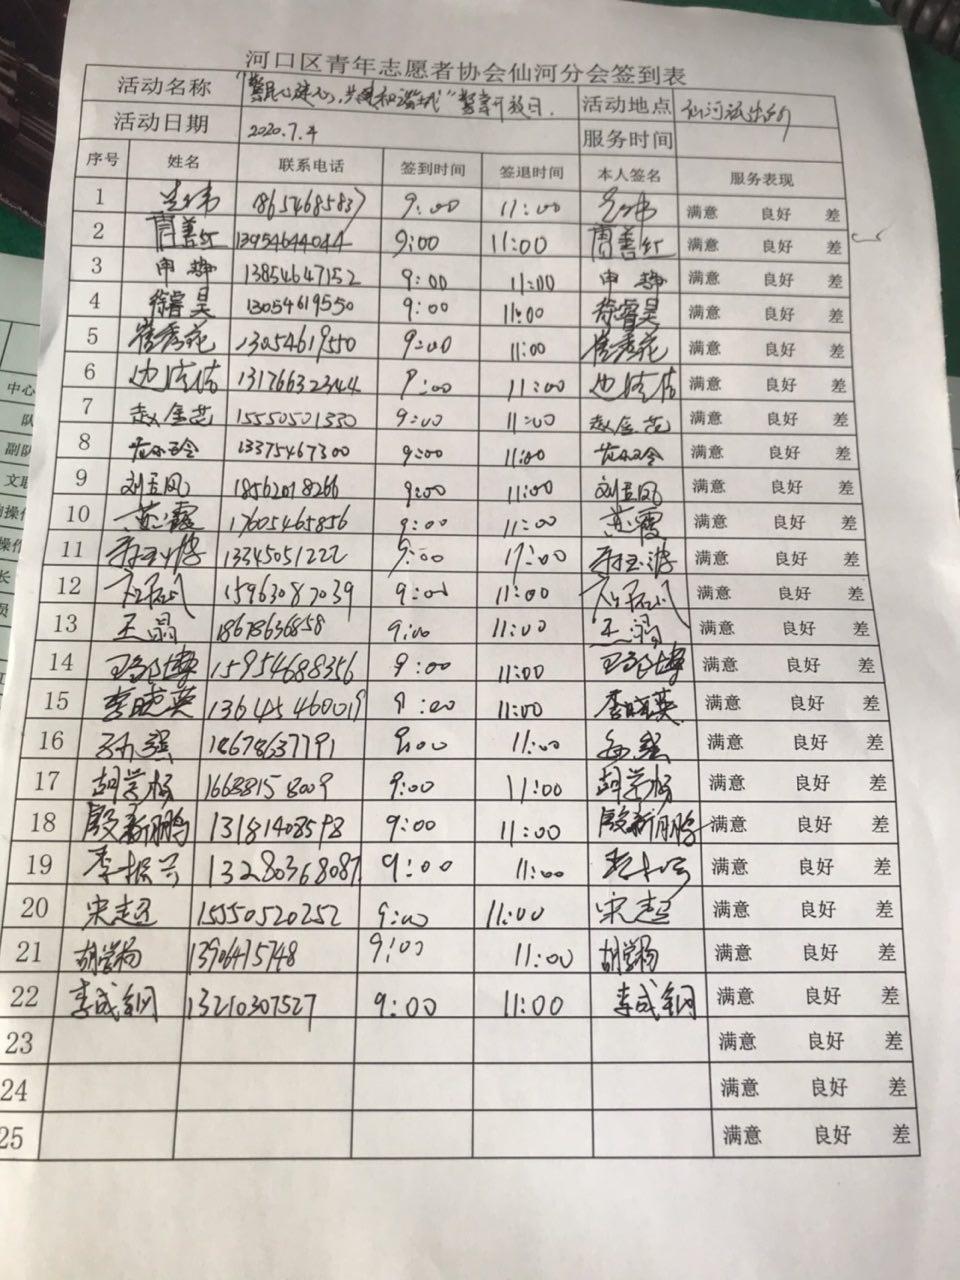 河口区青年志愿者协会仙河分会签到表
活动名称 "警民心连心,共建和谐城"警营开放日. 活动地点 仙河派出所
活动日期 2020.7.4 服务时间
序号 姓名 联系电话 签到时间 签退时间 本人签名 服务表现
1 18654685837 9:00 11:00 满意 良好 差
2 曹善红 13954644044 9:00 11:00 曹善红 满意 良好 差
3 申静 13854647152 9:00 11:00 申静 满意 良好 差
4 徐睿昊 13054619550 9:00 11:00 徐睿昊 满意 良好 差
5 崔秀花 13054619550 9:00 11:00 崔秀花 满意 良好 差
6 13176632344 9:00 11:00 满意 良好 差
7 赵金芝 15550501330 9:00 11:00 赵金芝 满意 良好 差
8 13375467300 9:00 11:00 满意 良好 差
9 刘吉凤 18562018266 9:00 11:00 刘吉凤 满意 良好 差
10 苏霞 17605465856 9:00 11:00 苏霞 满意 良好 差
11 13345051222 9:00 11:00 满意 良好 差
12 15963087039 9:00 11:00 满意 良好 差
13 王晶 18678636858 9:00 11:00 王晶 满意 良好 差
14 15954688356 9:00 11:00 满意 良好 差
15 李晓英 13645460019 9:00 11:00 李晓英 满意 良好 差
16 孙强 18678637791 9:00 11:00 孙强 满意 良好 差
17 胡学杨 16688158009 9:00 11:00 胡学杨 满意 良好 差
18 殷新鹏 13181408598 9:00 11:00 殷新鹏 满意 良好 差
19 李振兴 13280368087 9:00 11:00 满意 良好 差
20 宋超 15550520252 9:00 11:00 宋超 满意 良好 差
21 胡学杨 13906475748 9:00 11:00 胡学杨 满意 良好 差
22 李成钢 13210307527 9:00 11:00 李成钢 满意 良好 差
23 满意 良好 差
24 满意 良好 差
25 满意 良好 差
中心
队
副队
文职
操作
操作
长
员